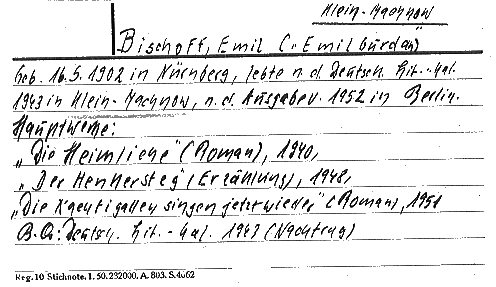 Klein-Machnow
Bischoff, Emil (:Emil burdan)
Geb. 16.5.1902 in Nürnberg, lebte n. d. Deutsch. Lit.-Kal.
1943 in Klein-Machnow, n. d. Ausgabe v. 1952 in Berlin.
Hauptwerke:
„Die Heimliche" (Roman), 1940,
„Der Hennersteg" (Erzählung), 1948,
„Die Nachtigallen singen jetzt wieder" (Roman), 1951
B. Q.: Deutsch. Lit.-Kal. 1943 (Nachtrag)
Reg. 10 Stichnote. I. 50. 232000. A. 803. S. 4062